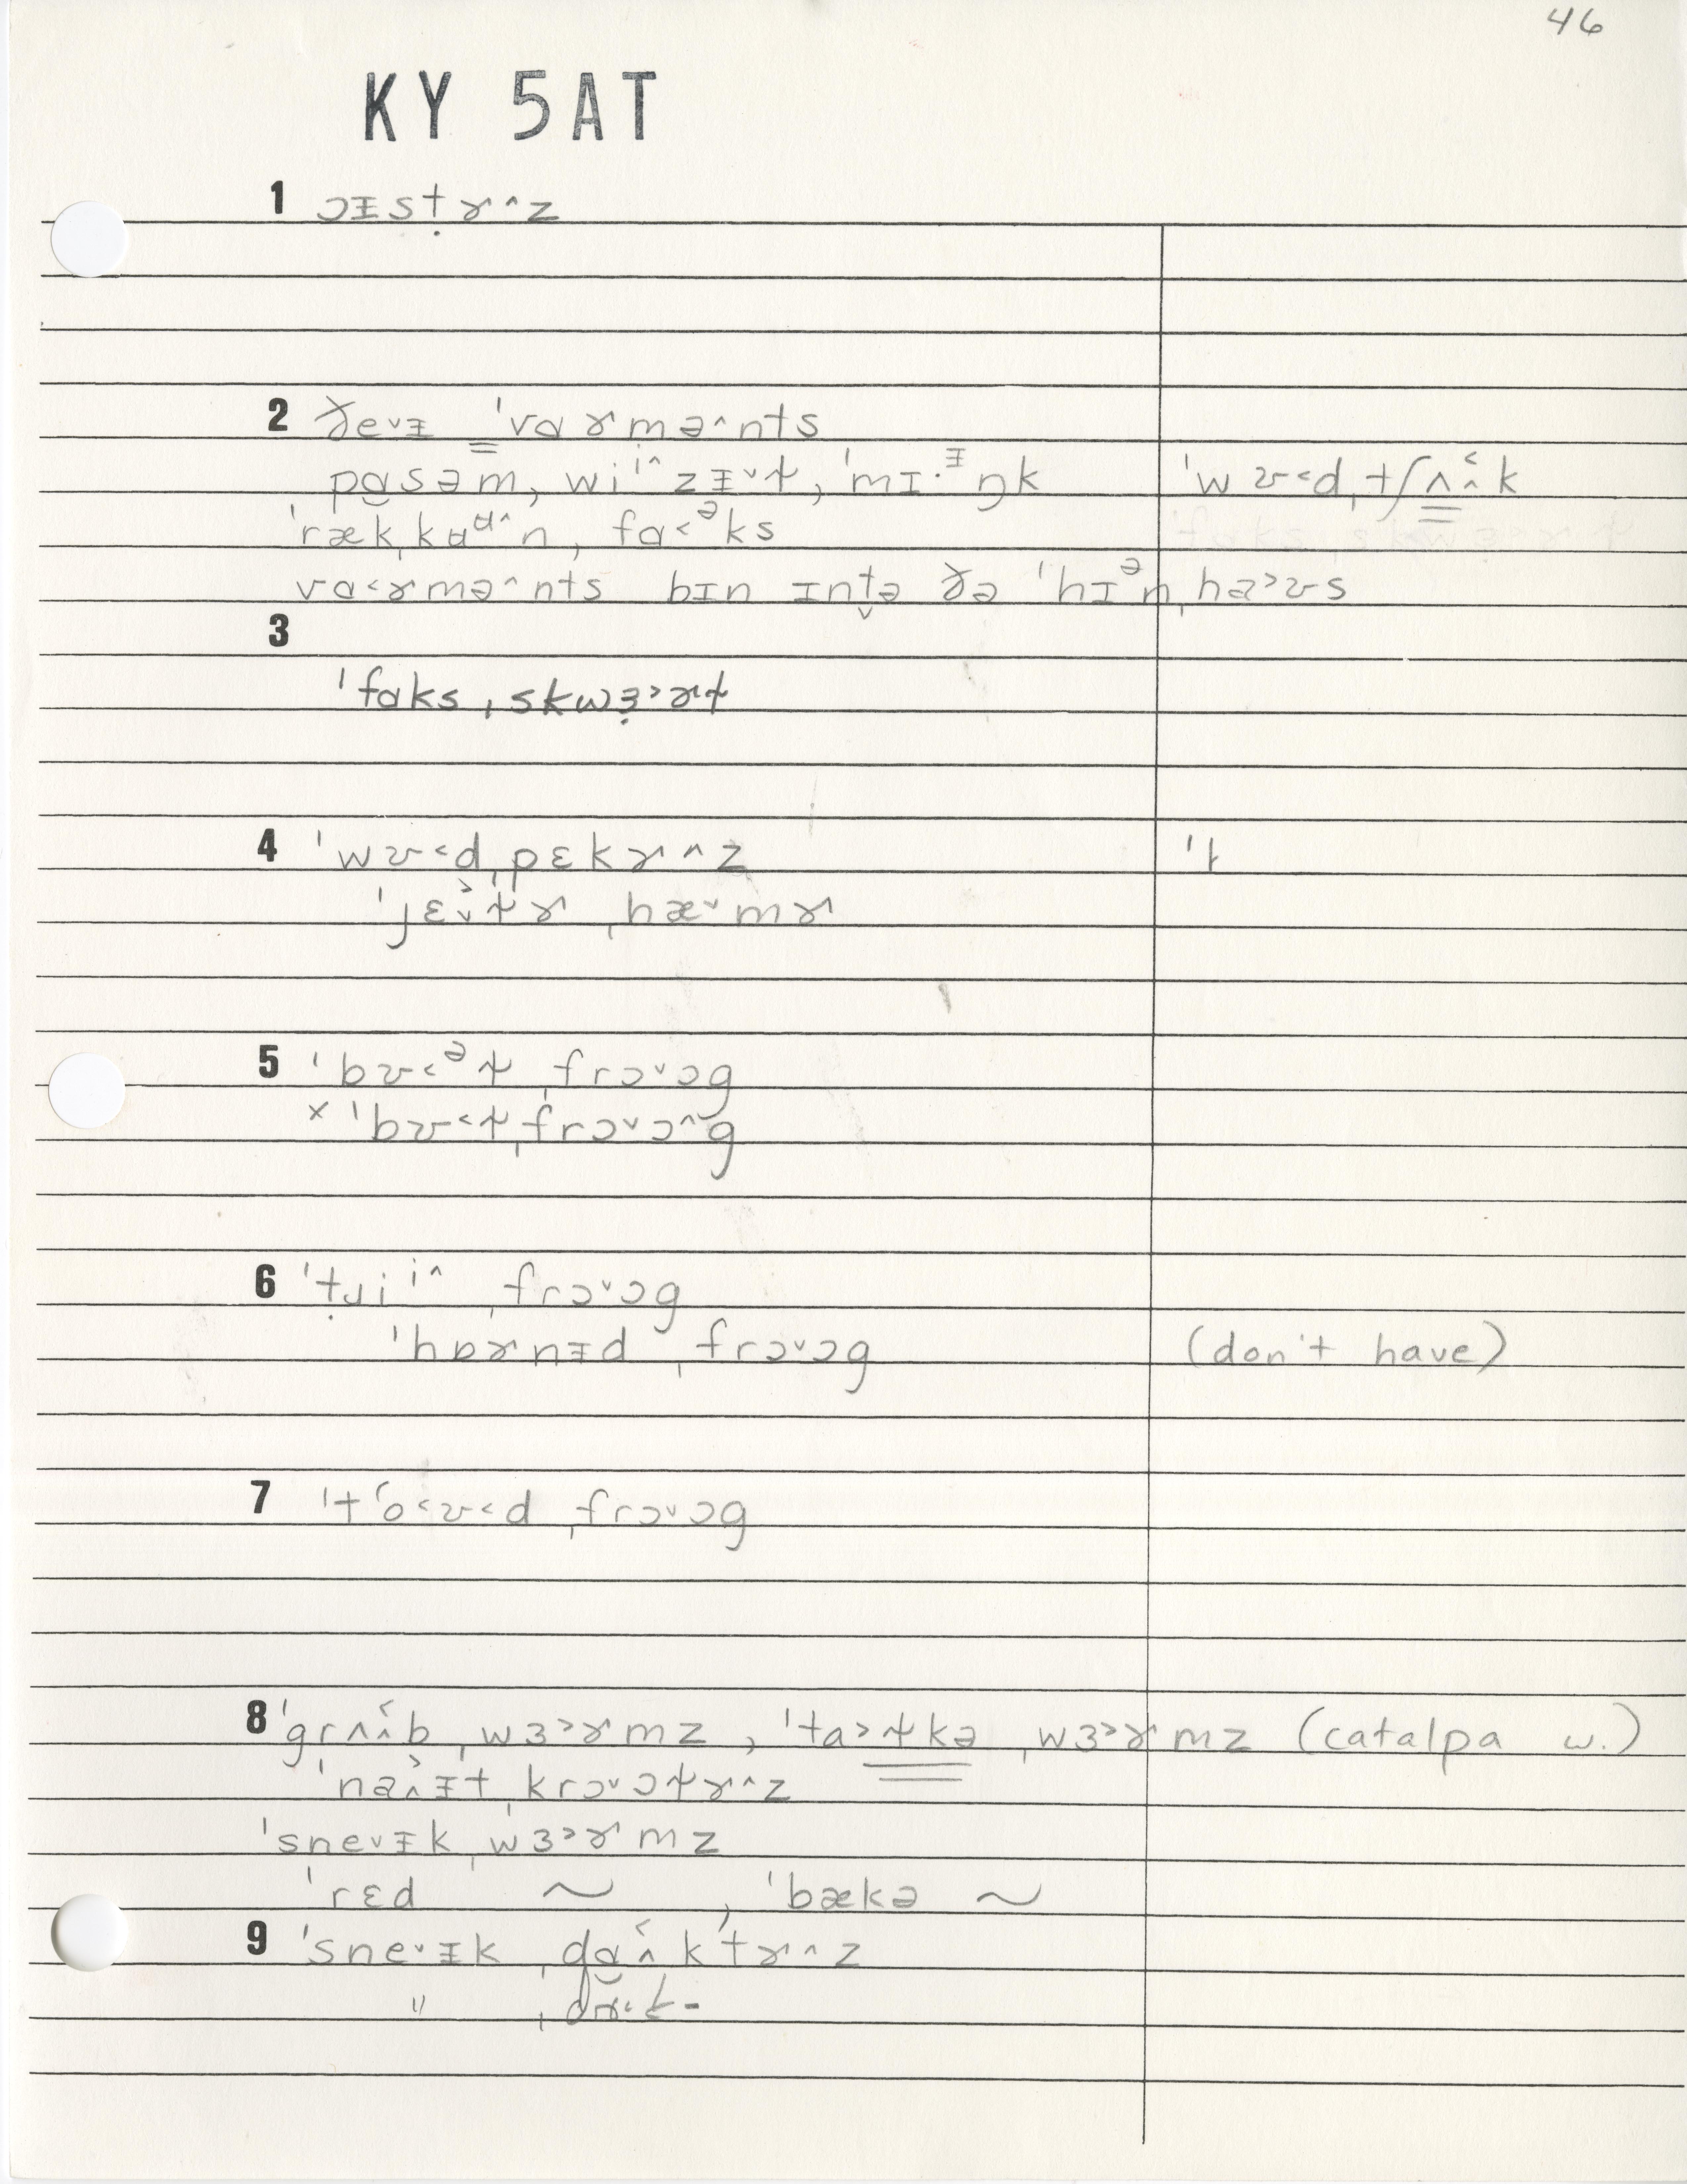 46
KY 5AT
1 ɔɪ̵stɚ˄z
2 ðeᵛɪ̵ ˈvɑɚmə˄nts
pɑsəm, wiⁱ˄zɪ̵ᵛɫ, ˈmɪ·ᶦ̵ŋk ˈwʊ˂dˌtʃʌ˄˂k
ˈrækˌkʉᵘ̵˄n, fɑ˂ᵊks
vɑ˂ɚmə˄nts bɪn ɪntə ðə ˈhɪᵊnˌha˃ʊs
3
ˈfɑksˌskwɜ˃ɚɫ
4 ˈwʊ˂dˌpɛkɚ˄z ˈl
ˈjɛᵛ˃ɫɚˌhæᵛmɚ
5 ˈbʊ˂ᵊɫˌfrɔᵛɔg
× ˈbʊ˂ɫˌfrɔᵛɔ˄g
6 ˈtɹiⁱ˄ˌfrɔᵛɔg
ˈhɒɚnɪ̵dˌfrɔᵛɔg (don't have)
7 ˈtʻo˂ʊ˂dˌfrɔᵛɔg
8 ˈgrʌ˄˂bˌwɜ˃ɚmz, ˈta˃ɫkəˌwɜ˃ɚmz (catalpa w.)
ˈna˄˃ɪ̵tˌkrɔᵛɔɫɚ˄z
ˈsneᵛɪ̵kˌwɜ˃ɚmz
ˈrɛd ~, ˈbækə ~
9 ˈsneᵛɪ̵kˌdɑ˄˂ktɚ˄z
"